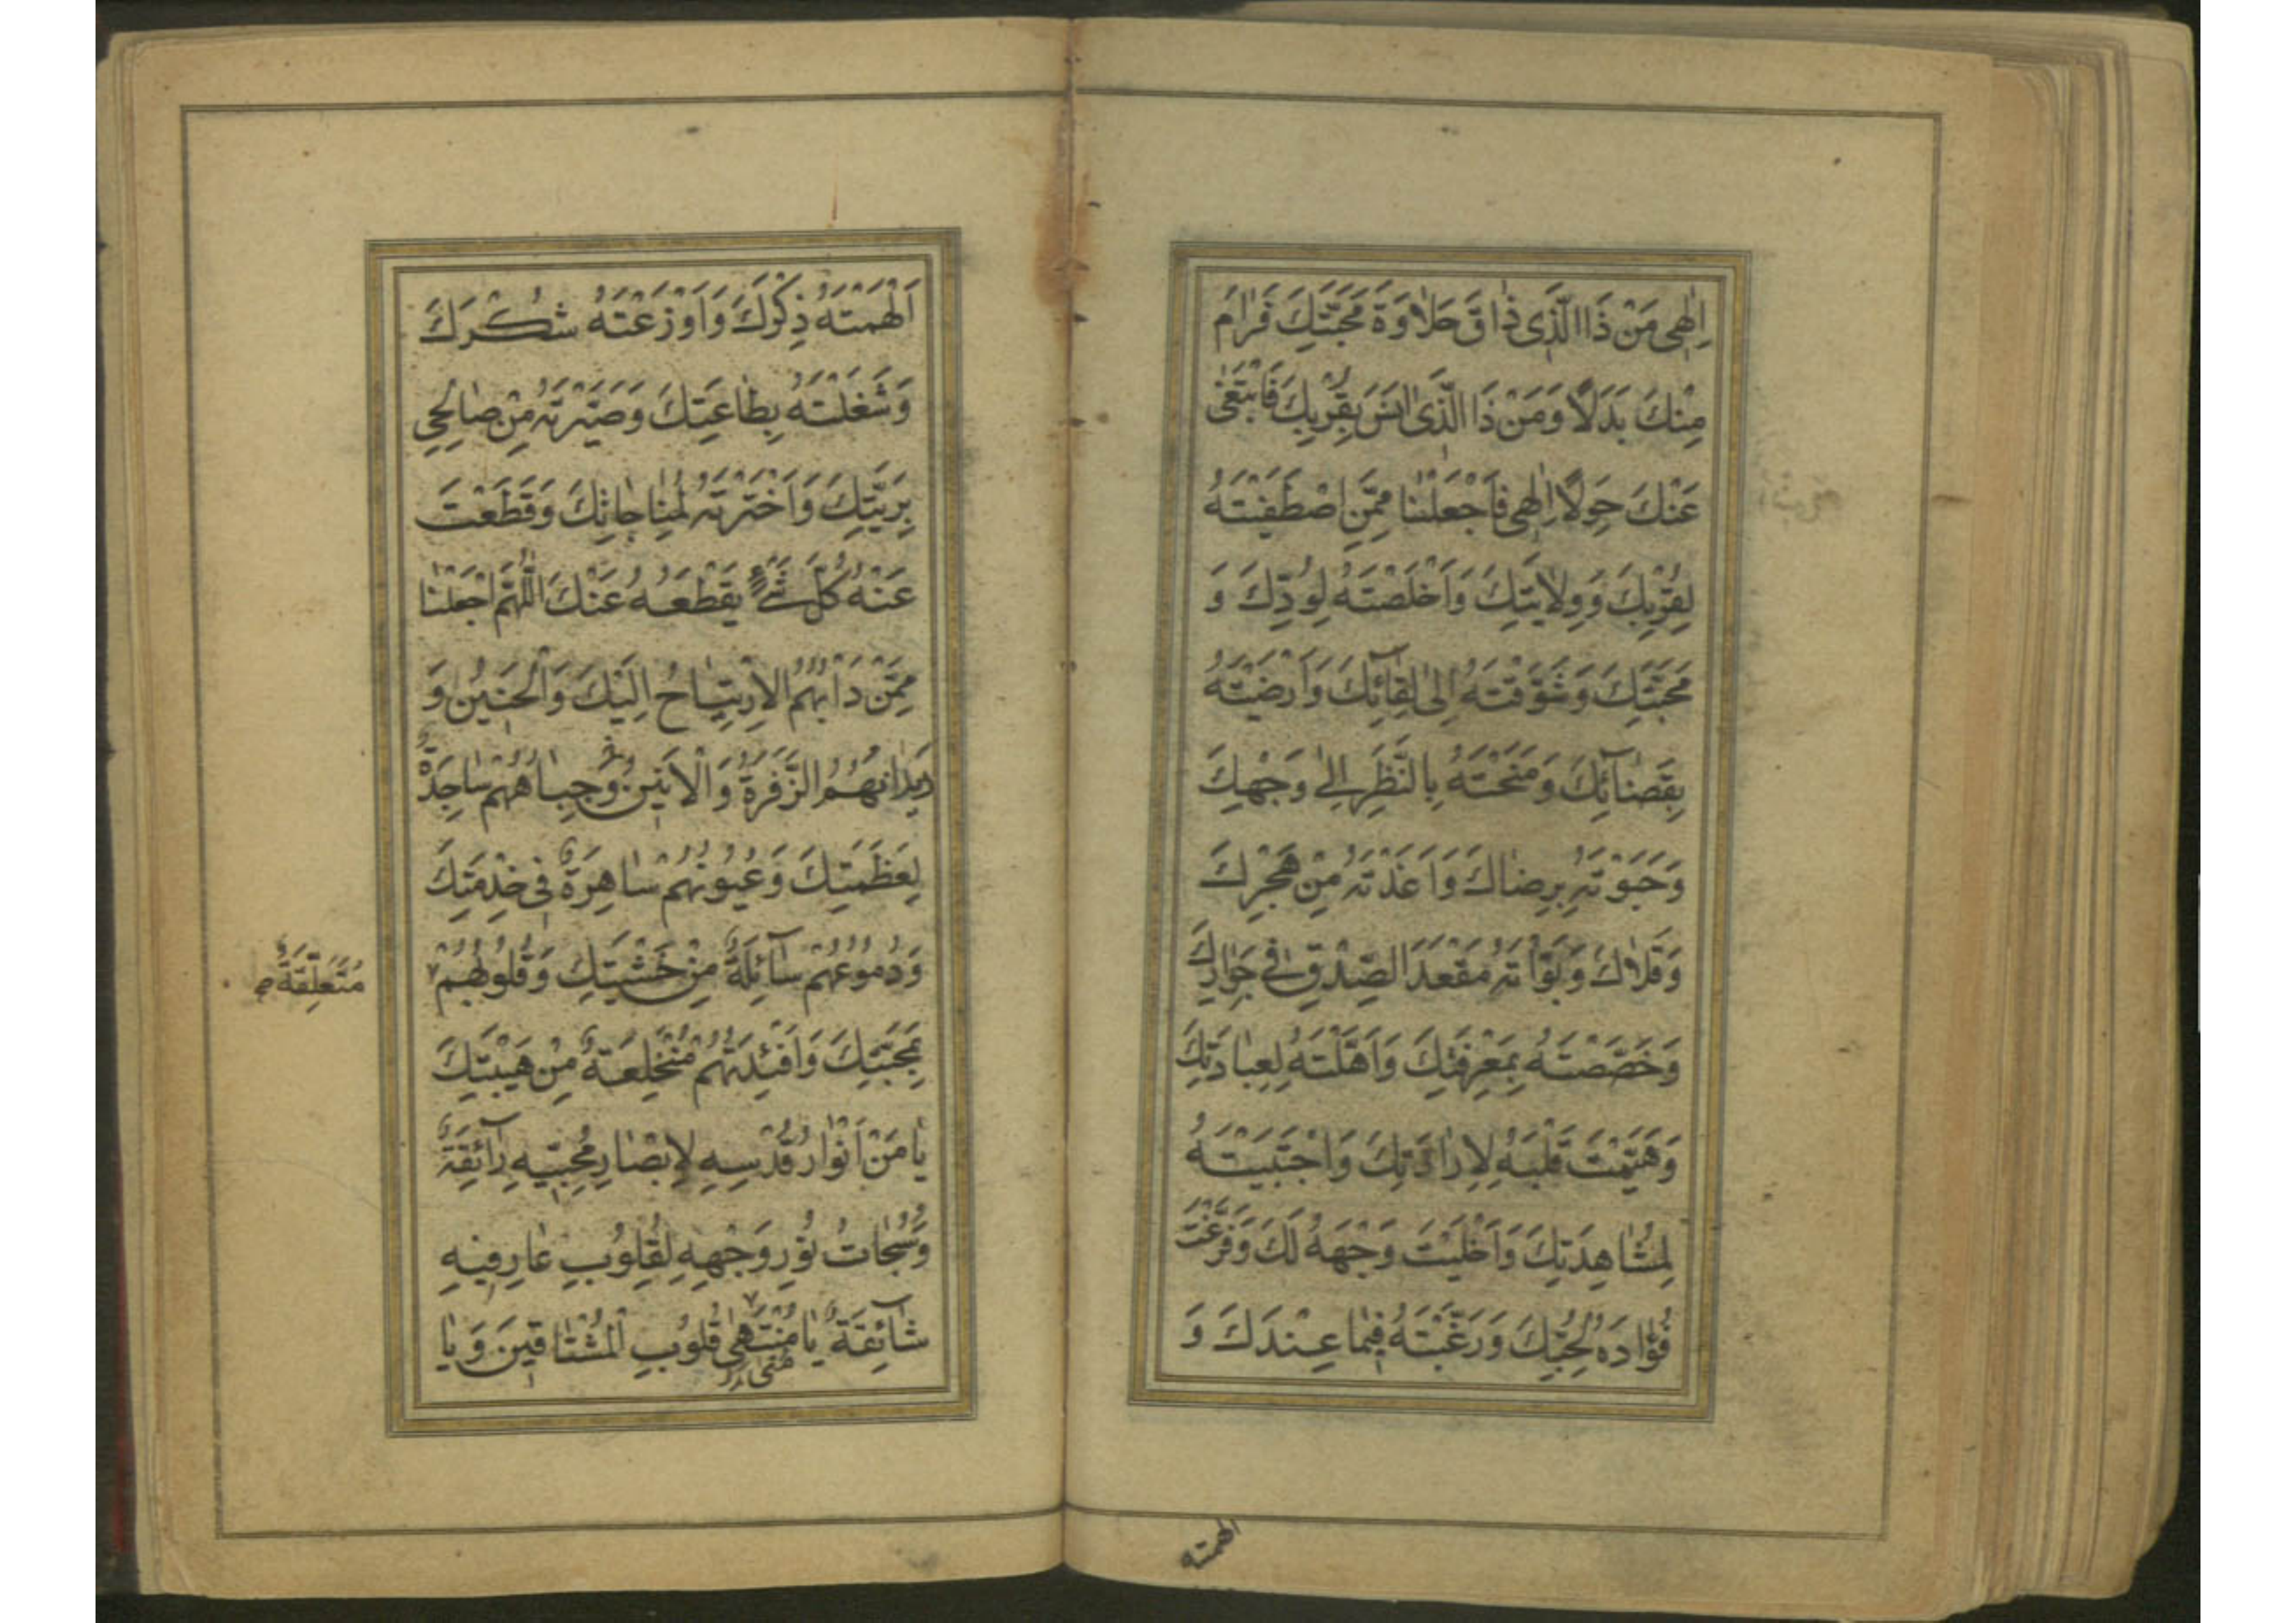 اِلٰهِی مَنْ ذَا الَّذِی ذٰاقَ حَلٰاوَةَ مَحَبَّتِكَ فَرٰامَ
مِنْكَ بَدَلًا وَمَنْ ذَا الَّذِی اَنِسَ بِقُرْبِكَ فَابْتَغٰی
عَنْكَ حِوَلًا اِلٰهِی فَاجْعَلْنٰا مِمَّنِ اصْطَفَیْتَهُ
لِقُرْبِكَ وَوِلٰایَتِكَ وَاَخْلَصْتَهُ لِوُدِّكَ وَ
مَحَبَّتِكَ وَشَوَّقْتَهُ اِلٰی لِقٰآئِكَ وَاَرْضَیْتَهُ
بِقَضٰآئِكَ وَمَنَحْتَهُ بِالنَّظَرِ اِلٰی وَجْهِكَ
وَحَبَوْتَهُ بِرِضٰاكَ وَاَعَذْتَهُ مِنْ هَجْرِكَ
وَقَلٰاكَ وَبَوَّأْتَهُ مَقْعَدَ الصِّدْقِ فِی جِوٰارِكَ
وَخَصَّصْتَهُ بِمَعْرِفَتِكَ وَاَهَّلْتَهُ لِعِبٰادَتِكَ
وَهَیَّمْتَ قَلْبَهُ لِاِرٰادَتِكَ وَاجْتَبَیْتَهُ
لِمُشٰاهِدَتِكَ وَاَخْلَیْتَ وَجْهَهُ لَكَ وَفَرَّغْتَ
فُؤٰادَهُ لِحُبِّكَ وَرَغَّبْتَهُ فِیمٰا عِنْدَكَ وَ
الهمته
اَلْهَمْتَهُ ذِكْرَكَ وَاَوْزَعْتَهُ شُكْرَكَ
وَشَغَلْتَهُ بِطٰاعَتِكَ وَصَیَّرْتَهُ مِنْ صٰالِحِی
بَرِیَّتِكَ وَاخْتَرْتَهُ لِمُنٰاجٰاتِكَ وَقَطَعْتَ
عَنْهُ كُلَّ شَیْءٍ یَقْطَعُهُ عَنْكَ اَللّٰهُمَّ اجْعَلْنٰا
مِمَّنْ دَأْبُهُمُ الْاِرْتِیٰاحُ اِلَیْكَ وَالْحَنِینُ وَ
دَیْدَانُهُمُ الزَّفْرَةُ وَالْاَنِینُ وَجِبٰاهُهُمْ سٰاجِدَةٌ
لِعَظَمَتِكَ وَعُیُونُهُمْ سٰاهِرَةٌ فِی خِدْمَتِكَ
وَدُمُوعُهُمْ سٰآئِلَةٌ مِنْ خَشْیَتِكَ وَقُلُوبُهُمْ
مُتَعَلِّقَةٌ صح
بِمَحَبَّتِكَ وَاَفْئِدَتُهُمْ مُنْخَلِعَةٌ مِنْ هَیْبَتِكَ
یٰا مَنْ اَنْوٰارُ قُدْسِهِ لِاَبْصٰارِ مُحِبِّیهِ رٰآئِقَةٌ
وَسُبُحٰاتُ نُورِ وَجْهِهِ لِقُلُوبِ عٰارِفِیهِ
شٰآئِقَةٌ یٰا مُنْتَهٰی قُلُوبِ الْمُشْتٰاقِینَ وَیٰا